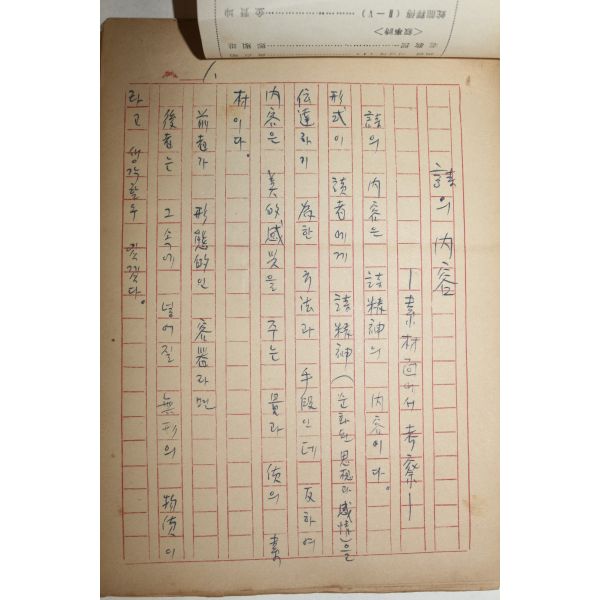 詩의 內容
—素材面에서 考察—
詩의 內容은 詩精神의 內容이다.
形式이 讀者에게 詩精神(순화된 思想과 感情)을
伝達하기 爲한 方法과 手段인데 反하여
內容은 美的 주는 量과 质의 素
材이다.
前者가 形態的인 容器라면
後者는 그 속에 넣어질 無形의 物质이
라고 생각할 수 있겠다.
<叙事詩>